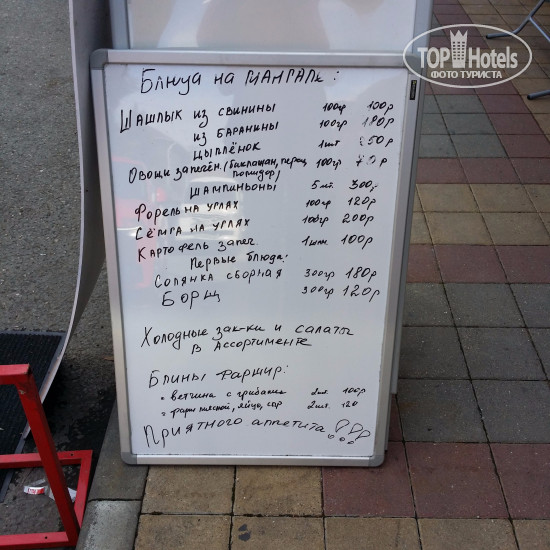 TOP Hotels
ФОТО ТУРИСТА
Блюда на МАНГАЛе:
Шашлык из свинины 100гр 100р
из баранины 100гр
цыплёнок 1шт 250р
Овощи запечён. (баклажан, перец, помидор) 100гр
шампиньоны 5 шт. 300р
Форель на углях 100гр 120р
Сёмга на углях 100гр 200р
Картофель запеч. 1шт 100р
Первые блюда:
Солянка сборная 300гр 180р
Борщ 300гр 120р
Холодные зак-ки и салаты
в Ассортименте
Блины фаршир:
• ветчина с грибами 2шт. 100р
• фарш мясной, яйцо, сыр 2шт. 120
Приятного аппетита!!!